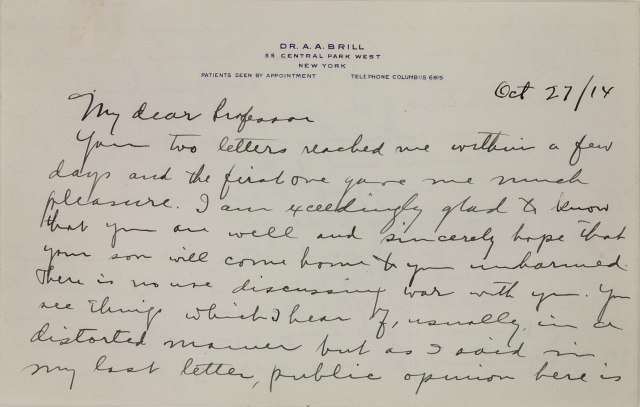 DR. A. A. BRILL
35 CENTRAL PARK WEST
NEW YORK
PATIENTS SEEN BY APPOINTMENT TELEPHONE COLUMBUS 6815
Oct 27/14
My dear Professor
Your two letters reached me within a few
days and the first one gave me much
pleasure. I am exceedingly glad to know
that you are well and sincerely hope that
your son will come home to you unharmed.
There is no use discussing war with you. You
see things which I hear of, usually, in a
distorted manner but as I said in
my last letter, public opinion here is